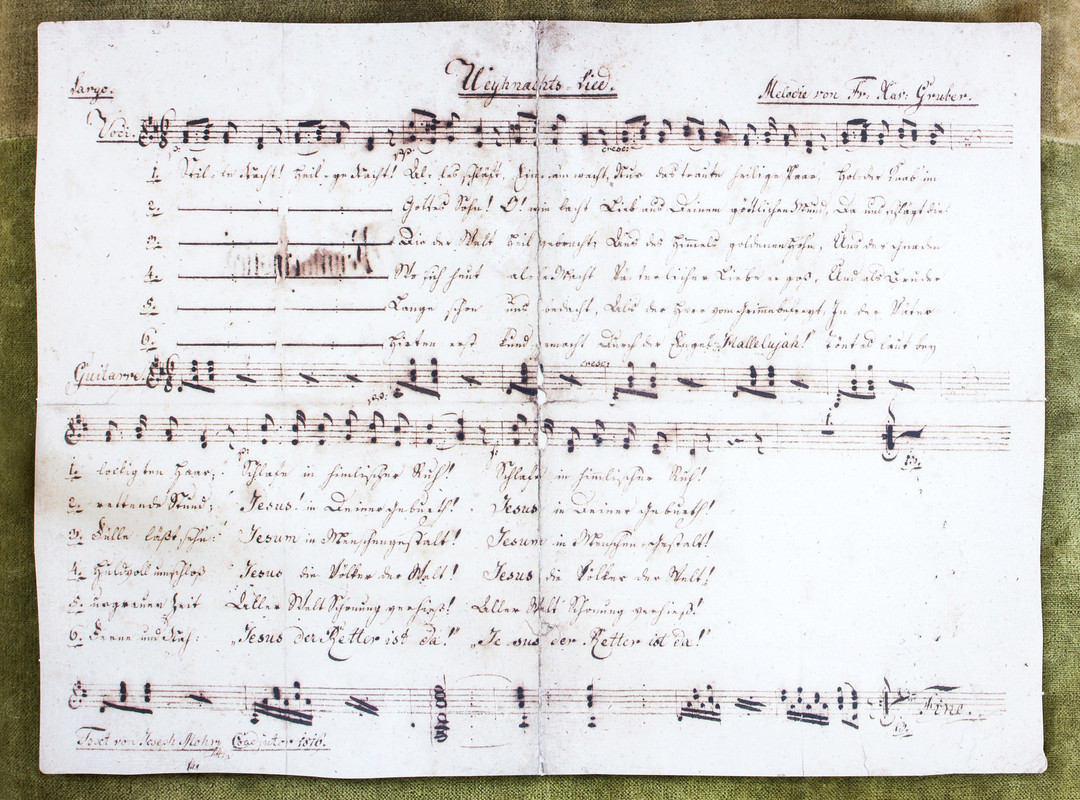 Largo. Weyhnachts-Lied. Melodie von Fr: Xav: Gruber.
Voci.
cresc:
1. Stil-le Nacht! Heil-ge Nacht! Al-les schläft. Ein-sam wacht, Nur das traute heilige Paar. Holder Knab im
2. Gottes Sohn! O! wie lacht Lieb aus Deinem göttlichen Mund, Da uns schlägt die
3. Die der Welt Heil gebracht, Aus des Himmels goldenen Höhn, Aus der Gnaden
4. Wo sich heut alle Macht Väterlicher Liebe ergoß, Und als Bruder
5. Lange schon uns bedacht, Als der Herr vom Grimme befreyt, In der Väter
6. Hirten erst kund gemacht Durch der Engel Hallelujah! Tönt es laut bey
Guitarre. cresc:
1. lockigten Haar; Schlafe in himlischer Ruh! Schlafe in himlischer Ruh!
2. rettende Stund; Jesus! in Deiner Geburth! Jesus in Deiner Geburth!
3. Fülle läßt sehn: Jesum in Menschengestalt! Jesum in Menschen-Gestalt!
4. Huldvoll umschloß Jesus die Völker der Welt! Jesus die Völker der Welt!
5. urgrauer Zeit Aller Welt Schonung verhieß! Aller Welt Schonung verhieß!
6. Ferne und Nah: „Jesus der Retter ist da!" „Jesus der Retter ist da!"
Fine.
Text von Joseph Mohr Coadjutor 1816.